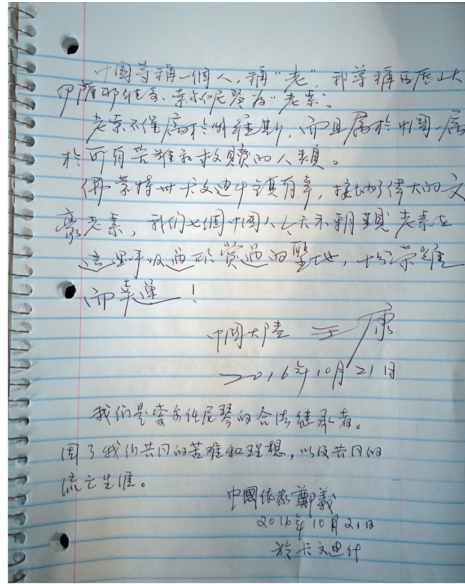 中國尊稱一個人，稱“老”
老索不僅屬於州，而且屬於中國，屬
於所有苦難和救贖的人類。
佛蒙特州卡文迪什鎮有幸，接納了偉大的文
豪老索，我們七個中國人今天來朝覲老索在
這里呼吸過欣賞過的聖地，十分榮耀
而幸運！
中國大陸
2016年10月21日
我们是索尔仁尼琴的合法继承者。
因了我们共同的苦难和理想，以及共同的
流亡生涯。
中國作家鄭義
2016年10月21日
於卡文迪什